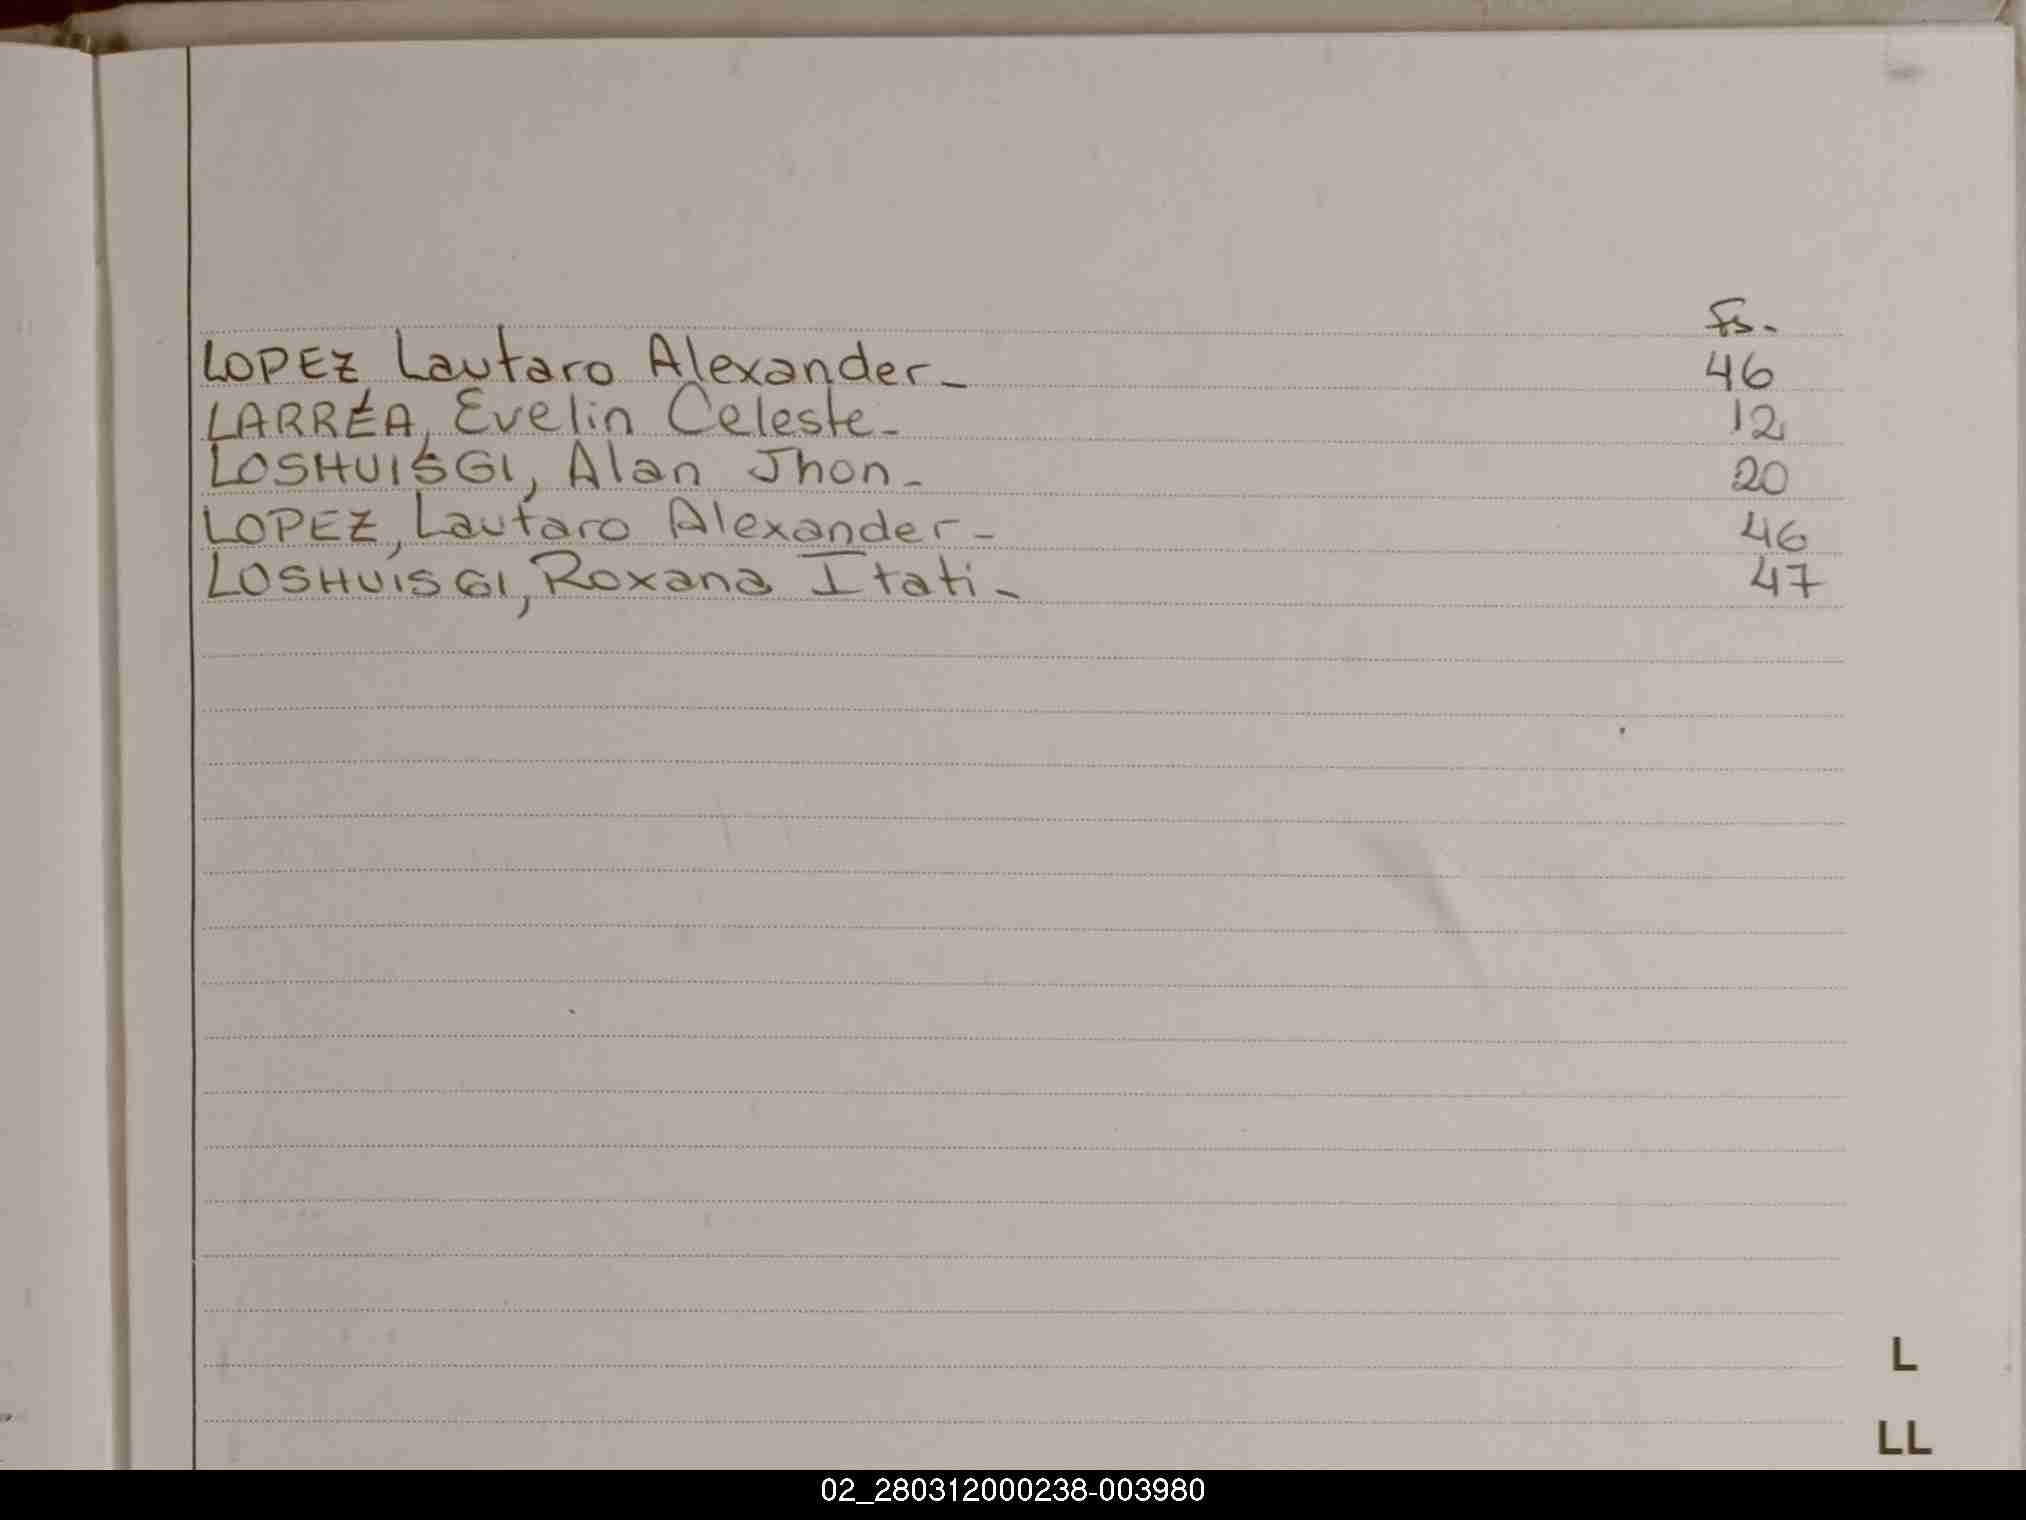 Fs.
LOPEZ, Lautaro Alexander_ 46
LARREA, Evelin Celeste_ 12
LOSHUISGI, Alan Jhon_ 20
LOPEZ, Lautaro Alexander_ 46
LOSHUISGI, Roxana Itati_ 47
L
LL
02_280312000238-003980